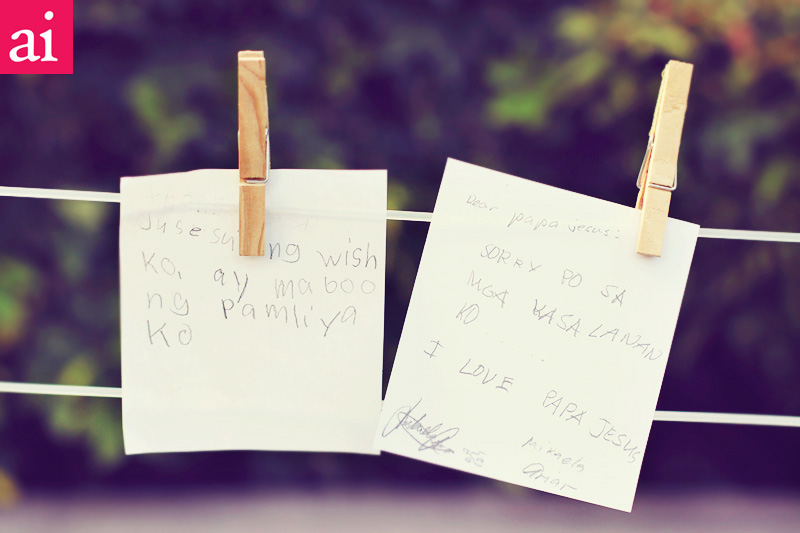 ai
Jusesu ng wish
Ko, ay maboo
ng pamliya
Ko
Dear papa jesus:
SORRY PO SA
MGA KASALANAN
KO
I LOVE PAPA JESUS
Mikaela
Amar